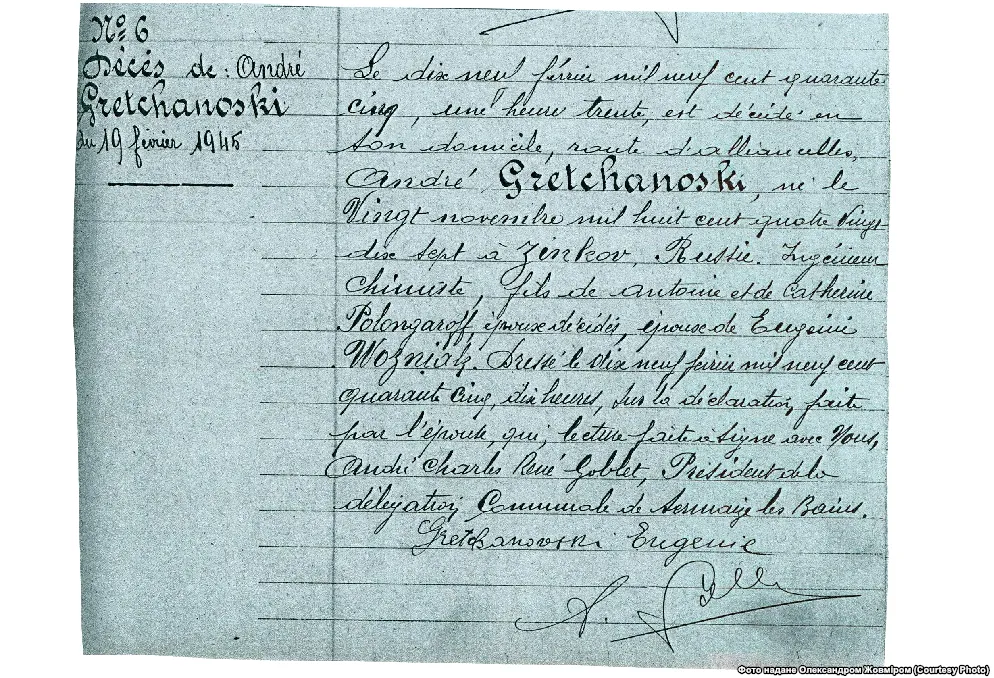 Nº 6
Décès de : André
Gretchanoski
du 19 février 1945
Le dix neuf février mil neuf cent quarante
cinq, une heure trente, est décédé en
son domicile, route d'alliancelles,
André Gretchanoski, né le
Vingt novembre mil huit cent quatre vingt
dix sept à Zinkov, Russie. Ingénieur
Chimiste, fils de Antoine et de Catherine
Polongaroff, époux décédés, époux de Eugénie
Wozniak. Dressé le dix neuf février mil neuf cent
quarante cinq, dix heures, sur la déclaration faite
par l'épouse, qui, lecture faite a signé avec Nous,
André Charles René Goblet, Président de la
délégation Communale de Sermaize les Bains.
Gretchanovski Eugenie
Фото надане Олександром Жовміром (Courtesy Photo)